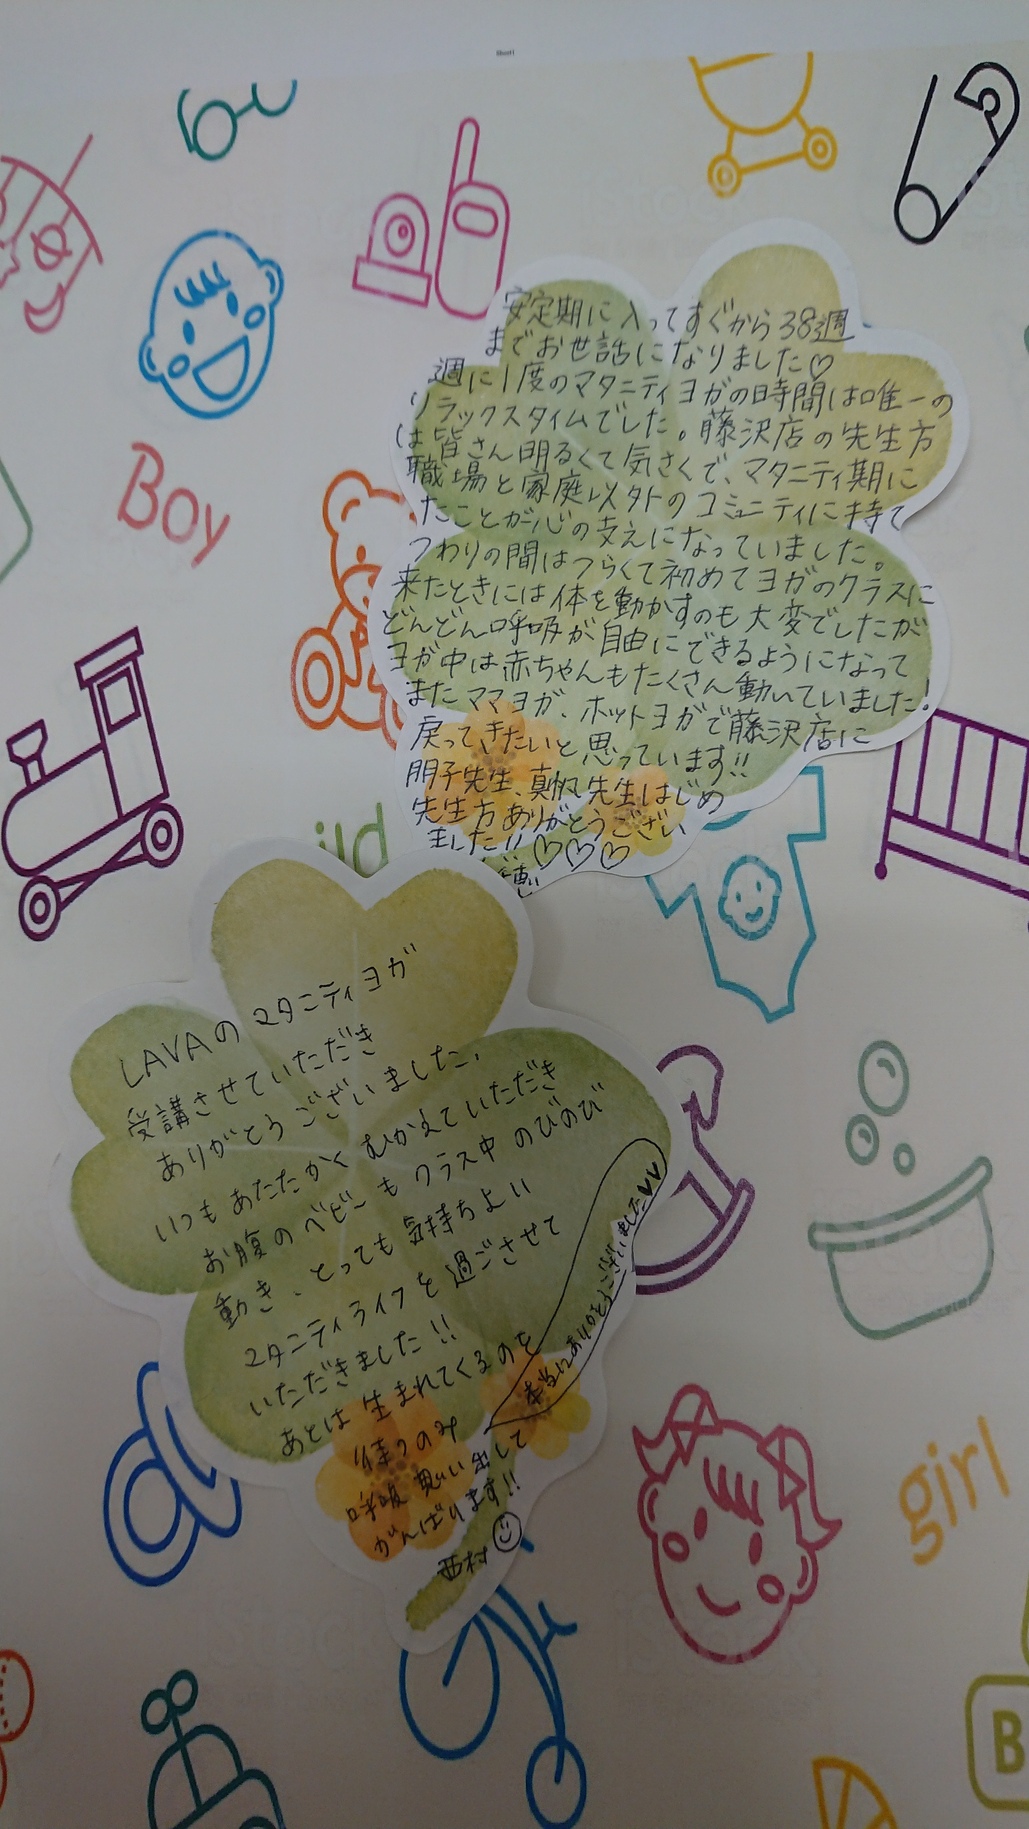 Boy
安定期に入ってすぐから38週
までお世話になりました♡
週に1度のマタニティヨガの時間は唯一の
リラックスタイムでした。藤沢店の先生方
は皆さん明るくて気さくで、マタニティ期に
職場と家庭以外のコミュニティに持て
たことが心の支えになっていました。
つわりの間はつらくて初めてヨガのクラスに
来たときには体を動かすのも大変でしたが
どんどん呼吸が自由にできるようになって
ヨガ中は赤ちゃんもたくさん動いていました!
またママヨガ、ホットヨガで藤沢店に
戻ってきたいと思っています!!
朋子先生、真帆先生はじめ
先生方ありがとうござい
ました!! ♡♡♡
ild
LAVAのマタニティヨガ
受講させていただき
ありがとうございました。
いつもあたたかくむかえていただき
お腹のベビーもクラス中のびのび
動き、とっても気持ちよい
マタニティライフを過ごさせて
いただきました!!
あとは生まれてくるのを
待つのみ
呼吸思い出して
がんばります!!
西村
本当にありがとうございました♥♥
girl
B